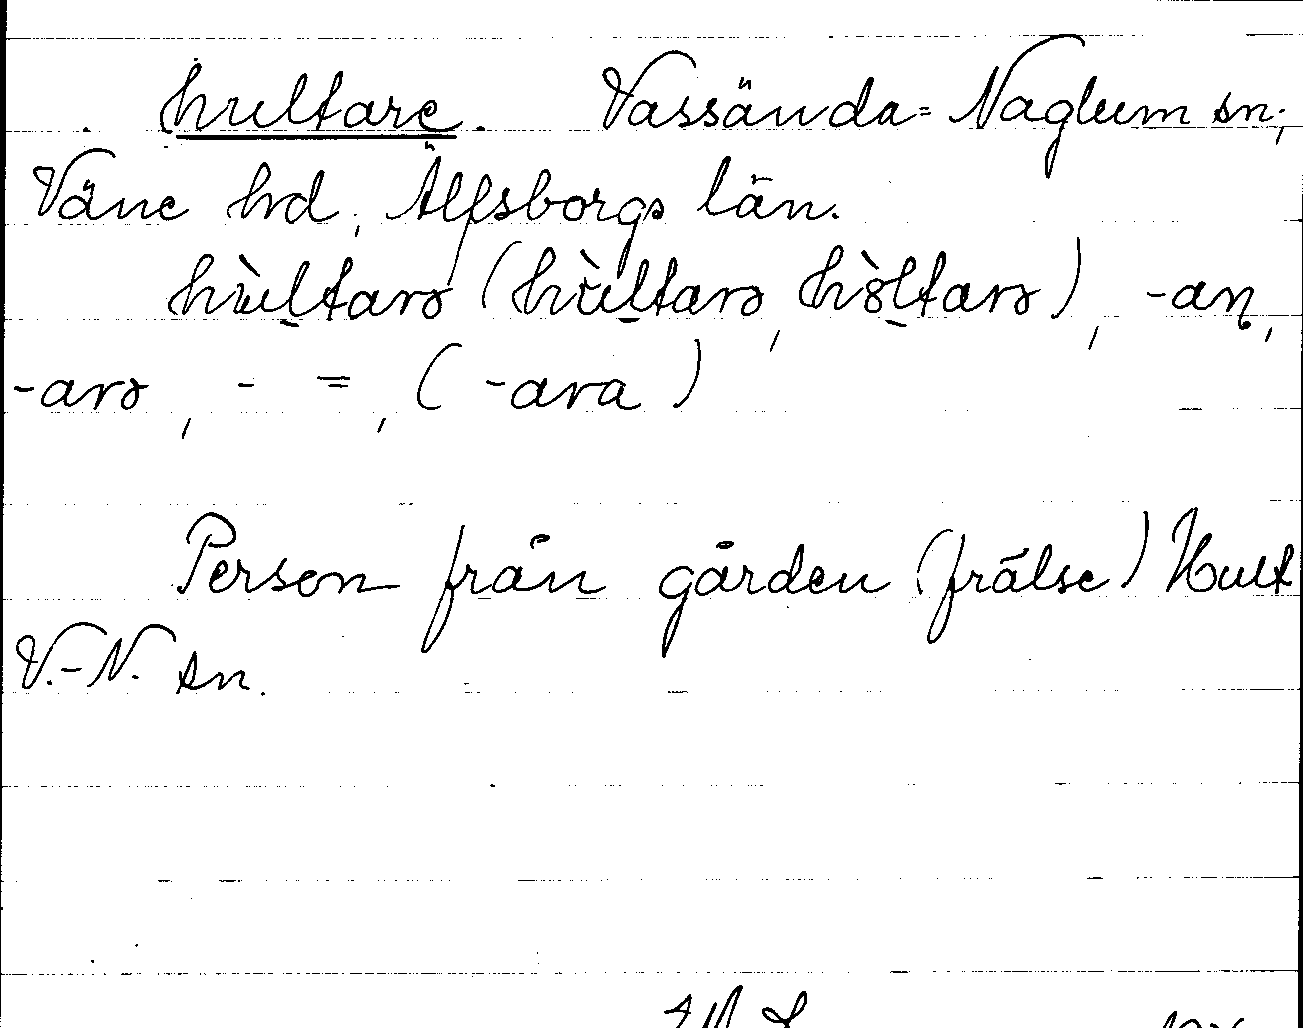 hultare. Vassända-Naglum sn;
Väne hd, Älfsborgs län.
hùltarə (hùltarə, hòltarə), -an,
-arə, - =, (-ara)
Person från gården (frälse) Hult
V.-N. sn.